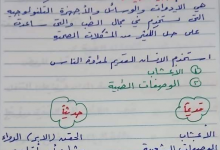 هي الأدوات والوسائل والأجهزة التكنولوجية
التي تستخدم في مجال الطب والتي ساعدت
على حل الكثير من المشكلات الصحية
استخدم الإنسان القديم لمداواة الناس
① الأعشاب
② الوصفات الطبية
قديماً
حديثاً
الأعشاب
الحقن (الإبر) الدواء